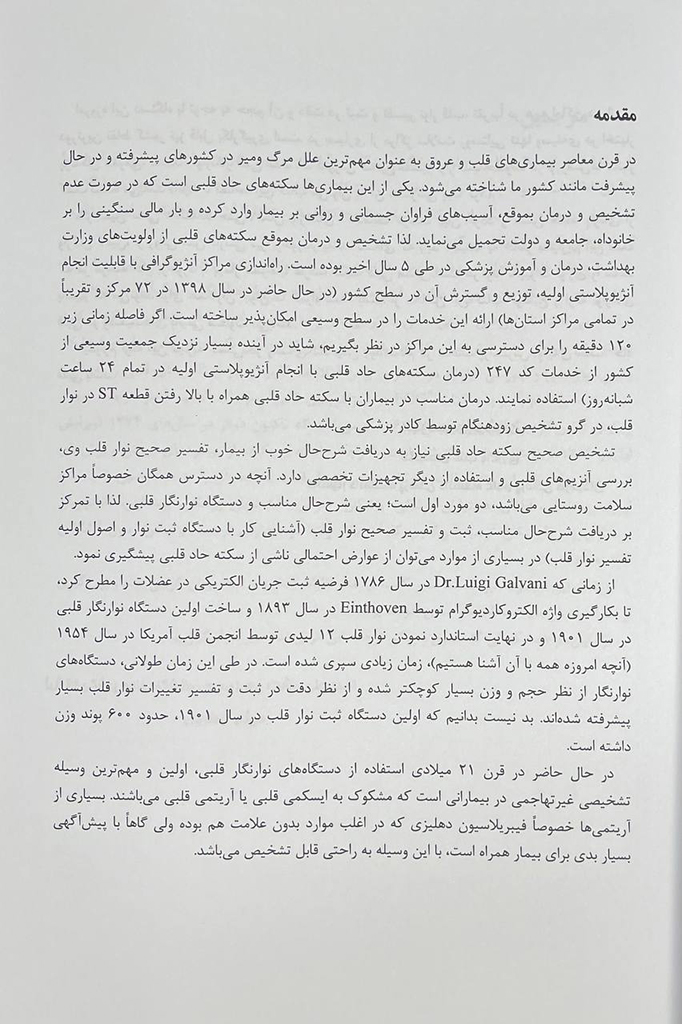 مقدمه
در قرن معاصر بیماری‌های قلب و عروق به عنوان مهم‌ترین علل مرگ ومیر در کشورهای پیشرفته و در حال
پیشرفت مانند کشور ما شناخته می‌شود. یکی از این بیماری‌ها سکته‌های حاد قلبی است که در صورت عدم
تشخیص و درمان بموقع، آسیب‌های فراوان جسمانی و روانی بر بیمار وارد کرده و بار مالی سنگینی را بر
خانوداه، جامعه و دولت تحمیل می‌نماید. لذا تشخیص و درمان بموقع سکته‌های قلبی از اولویت‌های وزارت
بهداشت، درمان و آموزش پزشکی در طی ۵ سال اخیر بوده است. راه‌اندازی مراکز آنژیوگرافی با قابلیت انجام
آنژیوپلاستی اولیه، توزیع و گسترش آن در سطح کشور (در حال حاضر در سال ۱۳۹۸ در ۷۲ مرکز و تقریباً
در تمامی مراکز استان‌ها) ارائه این خدمات را در سطح وسیعی امکان‌پذیر ساخته است. اگر فاصله زمانی زیر
۱۲۰ دقیقه را برای دسترسی به این مراکز در نظر بگیریم، شاید در آینده بسیار نزدیک جمعیت وسیعی از
کشور از خدمات کد ۲۴۷ (درمان سکته‌های حاد قلبی با انجام آنژیوپلاستی اولیه در تمام ۲۴ ساعت
شبانه‌روز) استفاده نمایند. درمان مناسب در بیماران با سکته حاد قلبی همراه با بالا رفتن قطعه ST در نوار
قلب، در گرو تشخیص زودهنگام توسط کادر پزشکی می‌باشد.
تشخیص صحیح سکته حاد قلبی نیاز به دریافت شرح‌حال خوب از بیمار، تفسیر صحیح نوار قلب وی،
بررسی آنزیم‌های قلبی و استفاده از دیگر تجهیزات تخصصی دارد. آنچه در دسترس همگان خصوصاً مراکز
سلامت روستایی می‌باشد، دو مورد اول است؛ یعنی شرح‌حال مناسب و دستگاه نوارنگار قلبی. لذا با تمرکز
بر دریافت شرح‌حال مناسب، ثبت و تفسیر صحیح نوار قلب (آشنایی کار با دستگاه ثبت نوار و اصول اولیه
تفسیر نوار قلب) در بسیاری از موارد می‌توان از عوارض احتمالی ناشی از سکته حاد قلبی پیشگیری نمود.
از زمانی که Dr.Luigi Galvani در سال ۱۷۸۶ فرضیه ثبت جریان الکتریکی در عضلات را مطرح کرد،
تا بکارگیری واژه الکتروکاردیوگرام توسط Einthoven در سال ۱۸۹۳ و ساخت اولین دستگاه نوارنگار قلبی
در سال ۱۹۰۱ و در نهایت استاندارد نمودن نوار قلب ۱۲ لیدی توسط انجمن قلب آمریکا در سال ۱۹۵۴
(آنچه امروزه همه با آن آشنا هستیم)، زمان زیادی سپری شده است. در طی این زمان طولانی، دستگاه‌های
نوارنگار از نظر حجم و وزن بسیار کوچکتر شده و از نظر دقت در ثبت و تفسیر تغییرات نوار قلب بسیار
پیشرفته شده‌اند. بد نیست بدانیم که اولین دستگاه ثبت نوار قلب در سال ۱۹۰۱، حدود ۶۰۰ پوند وزن
داشته است.
در حال حاضر در قرن ۲۱ میلادی استفاده از دستگاه‌های نوارنگار قلبی، اولین و مهم‌ترین وسیله
تشخیصی غیرتهاجمی در بیمارانی است که مشکوک به ایسکمی قلبی یا آریتمی قلبی می‌باشند. بسیاری از
آریتمی‌ها خصوصاً فیبریلاسیون دهلیزی که در اغلب موارد بدون علامت هم بوده ولی گاهاً با پیش‌آگهی
بسیار بدی برای بیمار همراه است، با این وسیله به راحتی قابل تشخیص می‌باشد.